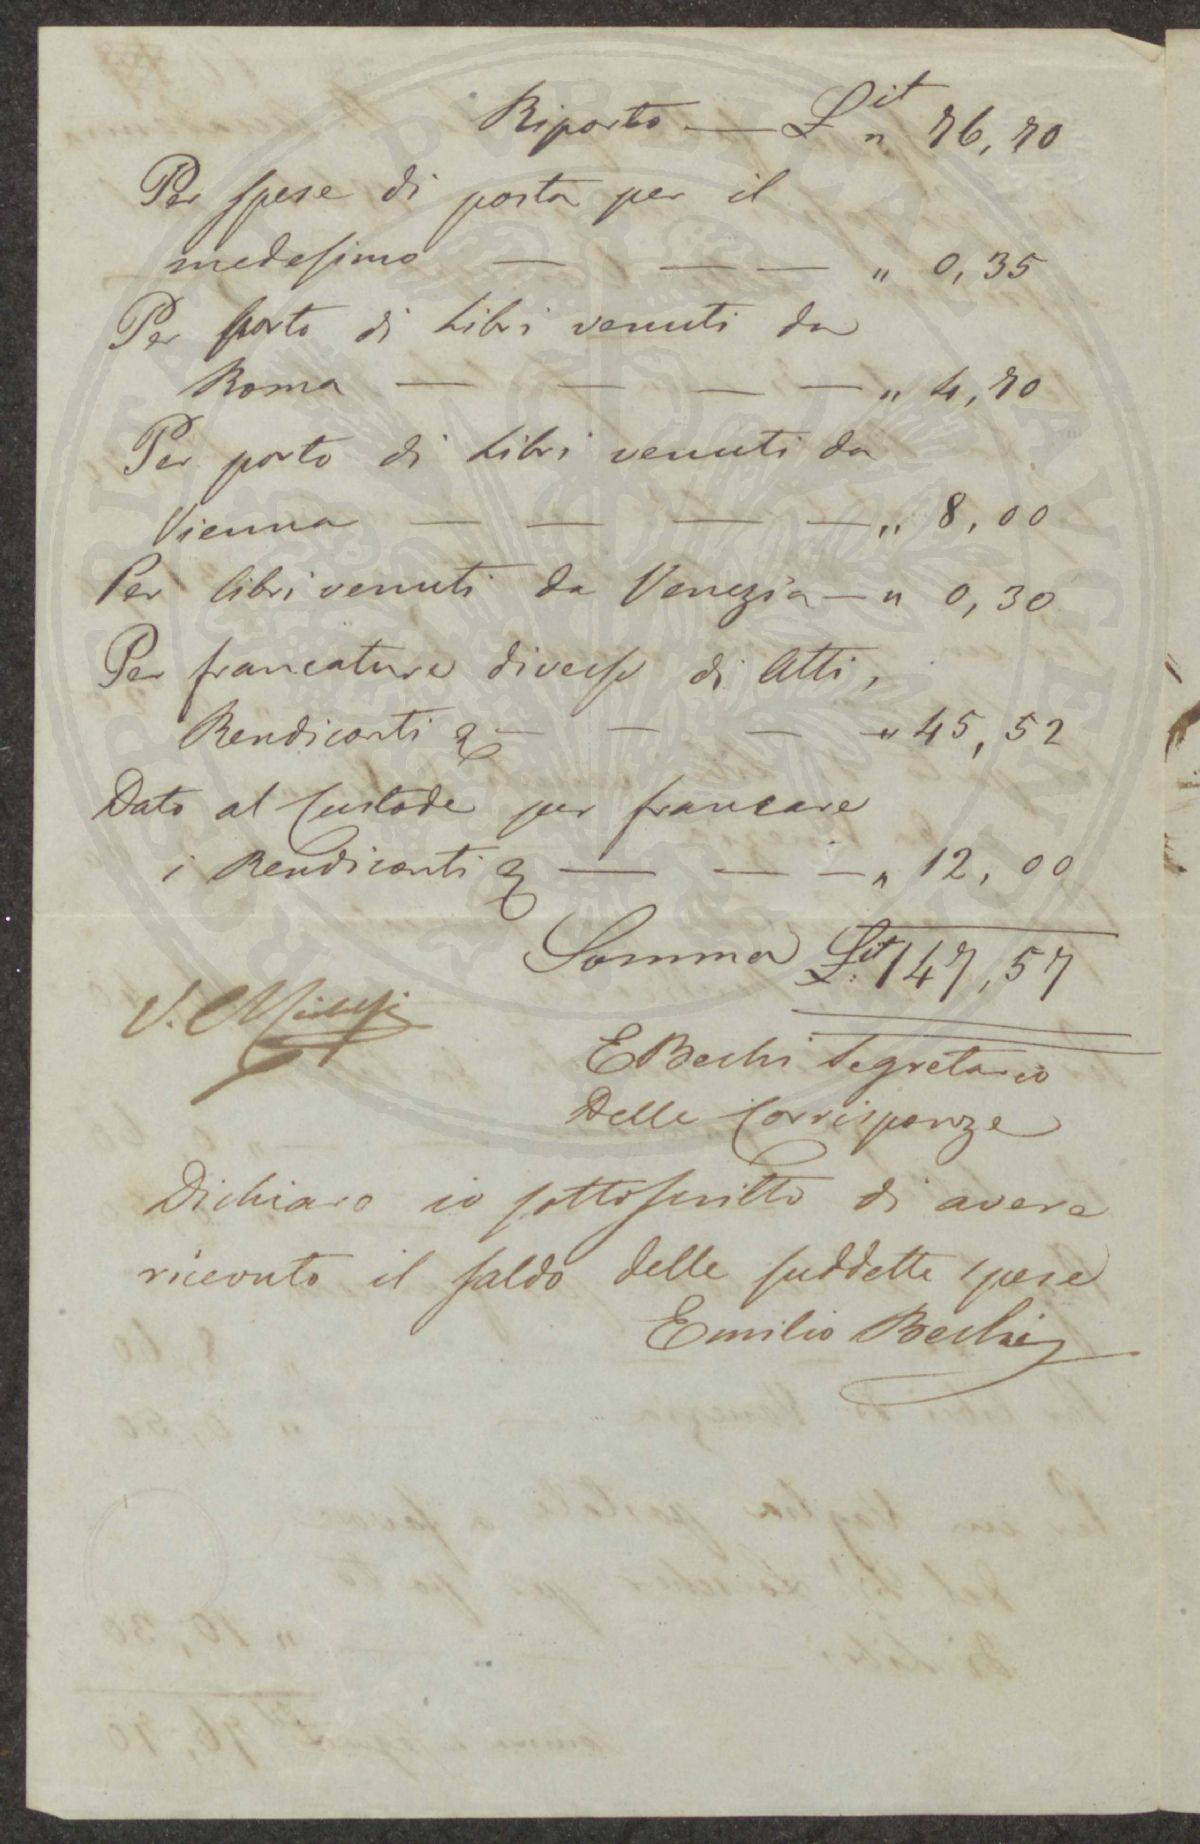 Riporto — £it " 76,70
Per spese di posta per il
medesimo — — — " 0,35
Per porto di Libri venuti da
Roma — — — — " 4,70
Per porto di Libri venuti da
Vienna — — — — " 8,00
Per libri venuti da Venezia — " 0,30
Per francature diverse di Atti,
Rendiconti — — — " 45,52
Dato al Custode per francare
i Rendiconti — — — " 12,00
Somma £it: 147,57
V.
E Bechi Segretario
Delle Corrisponze
Dichiaro io sottoscritto di avere
ricevuto il saldo delle suddette spese
Emilio Bechi